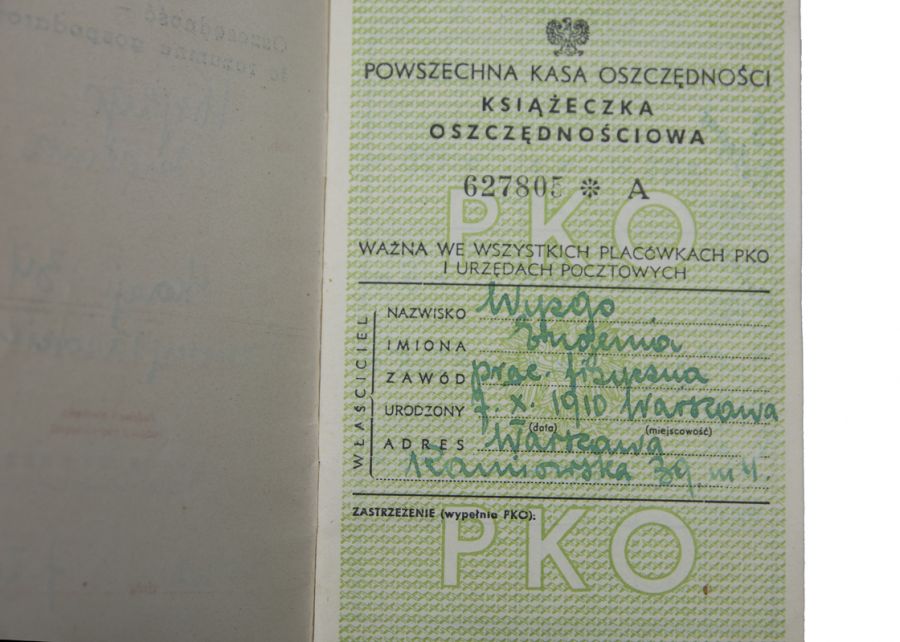 Oszczędność –
to rozumne gospodaro
POWSZECHNA KASA OSZCZĘDNOŚCI
KSIĄŻECZKA
OSZCZĘDNOŚCIOWA
627805 ❊ A
PKO
WAŻNA WE WSZYSTKICH PLACÓWKACH PKO
I URZĘDACH POCZTOWYCH
WŁAŚCICIEL
NAZWISKO
IMIONA Eugenia
ZAWÓD prac. fizyczna
URODZONY 7. X. 1910 Warszawa
(data) (miejscowość)
ADRES Warszawa
Kaniowska 39 m 4.
ZASTRZEŻENIE (wypełnia PKO):
PKO